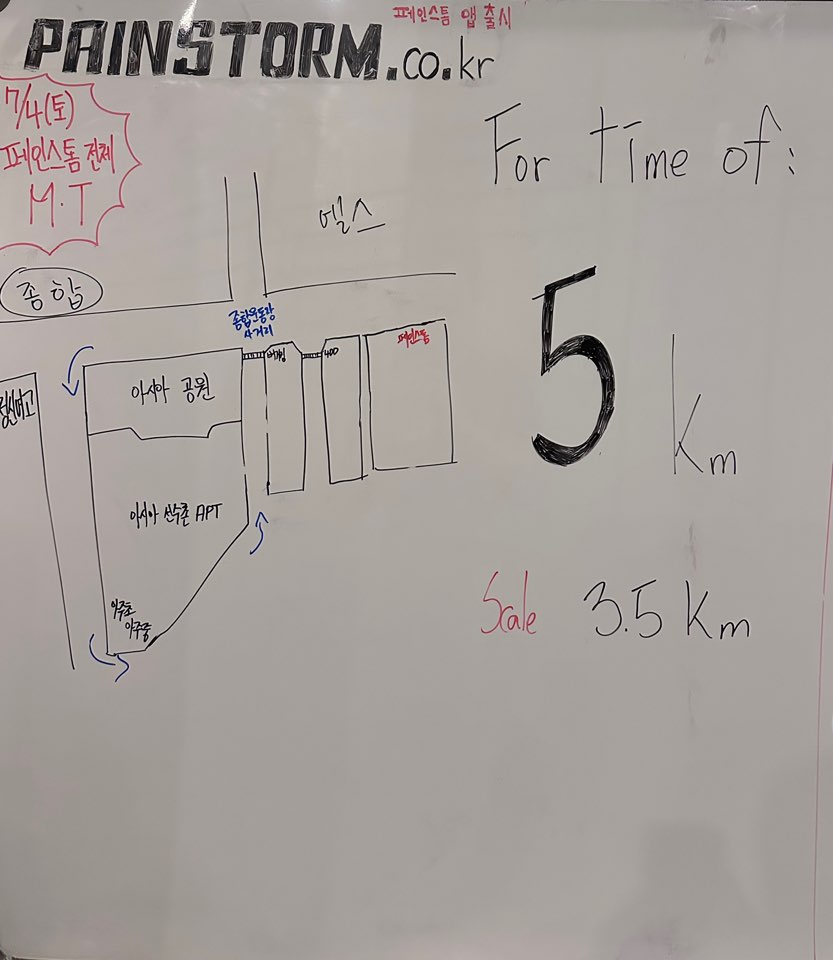 페인스톰 앱 출시
PAINSTORM.co.kr
7/4(토)
페인스톰 전체
M.T
For time of:
엘스
종합
종합운동장
사거리
버거킹
400
페인스톰
아시아 공원
정신여고
5 Km
아시아 선수촌 APT
아주초
아주중
Scale 3.5 Km